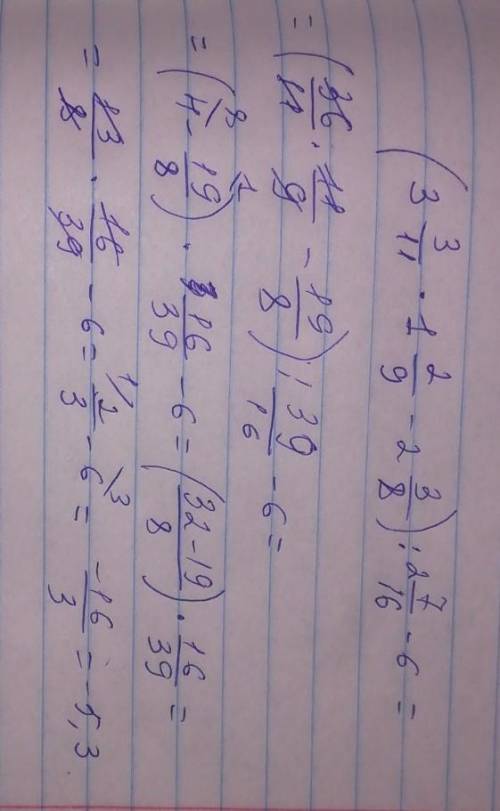 (3 3/11 · 1 2/9 - 2 3/8) : 2 7/16 - 6 =
= (36/11 · 11/9 - 19/8) : 39/16 - 6 =
= (4 \8 - 19/8 \1) · 16/39 - 6 = (32-19/8) · 16/39 =
= 13/8 · 16/39 - 6 = 1\ 2/3 - 6 \3 = -16/3 = -5,3